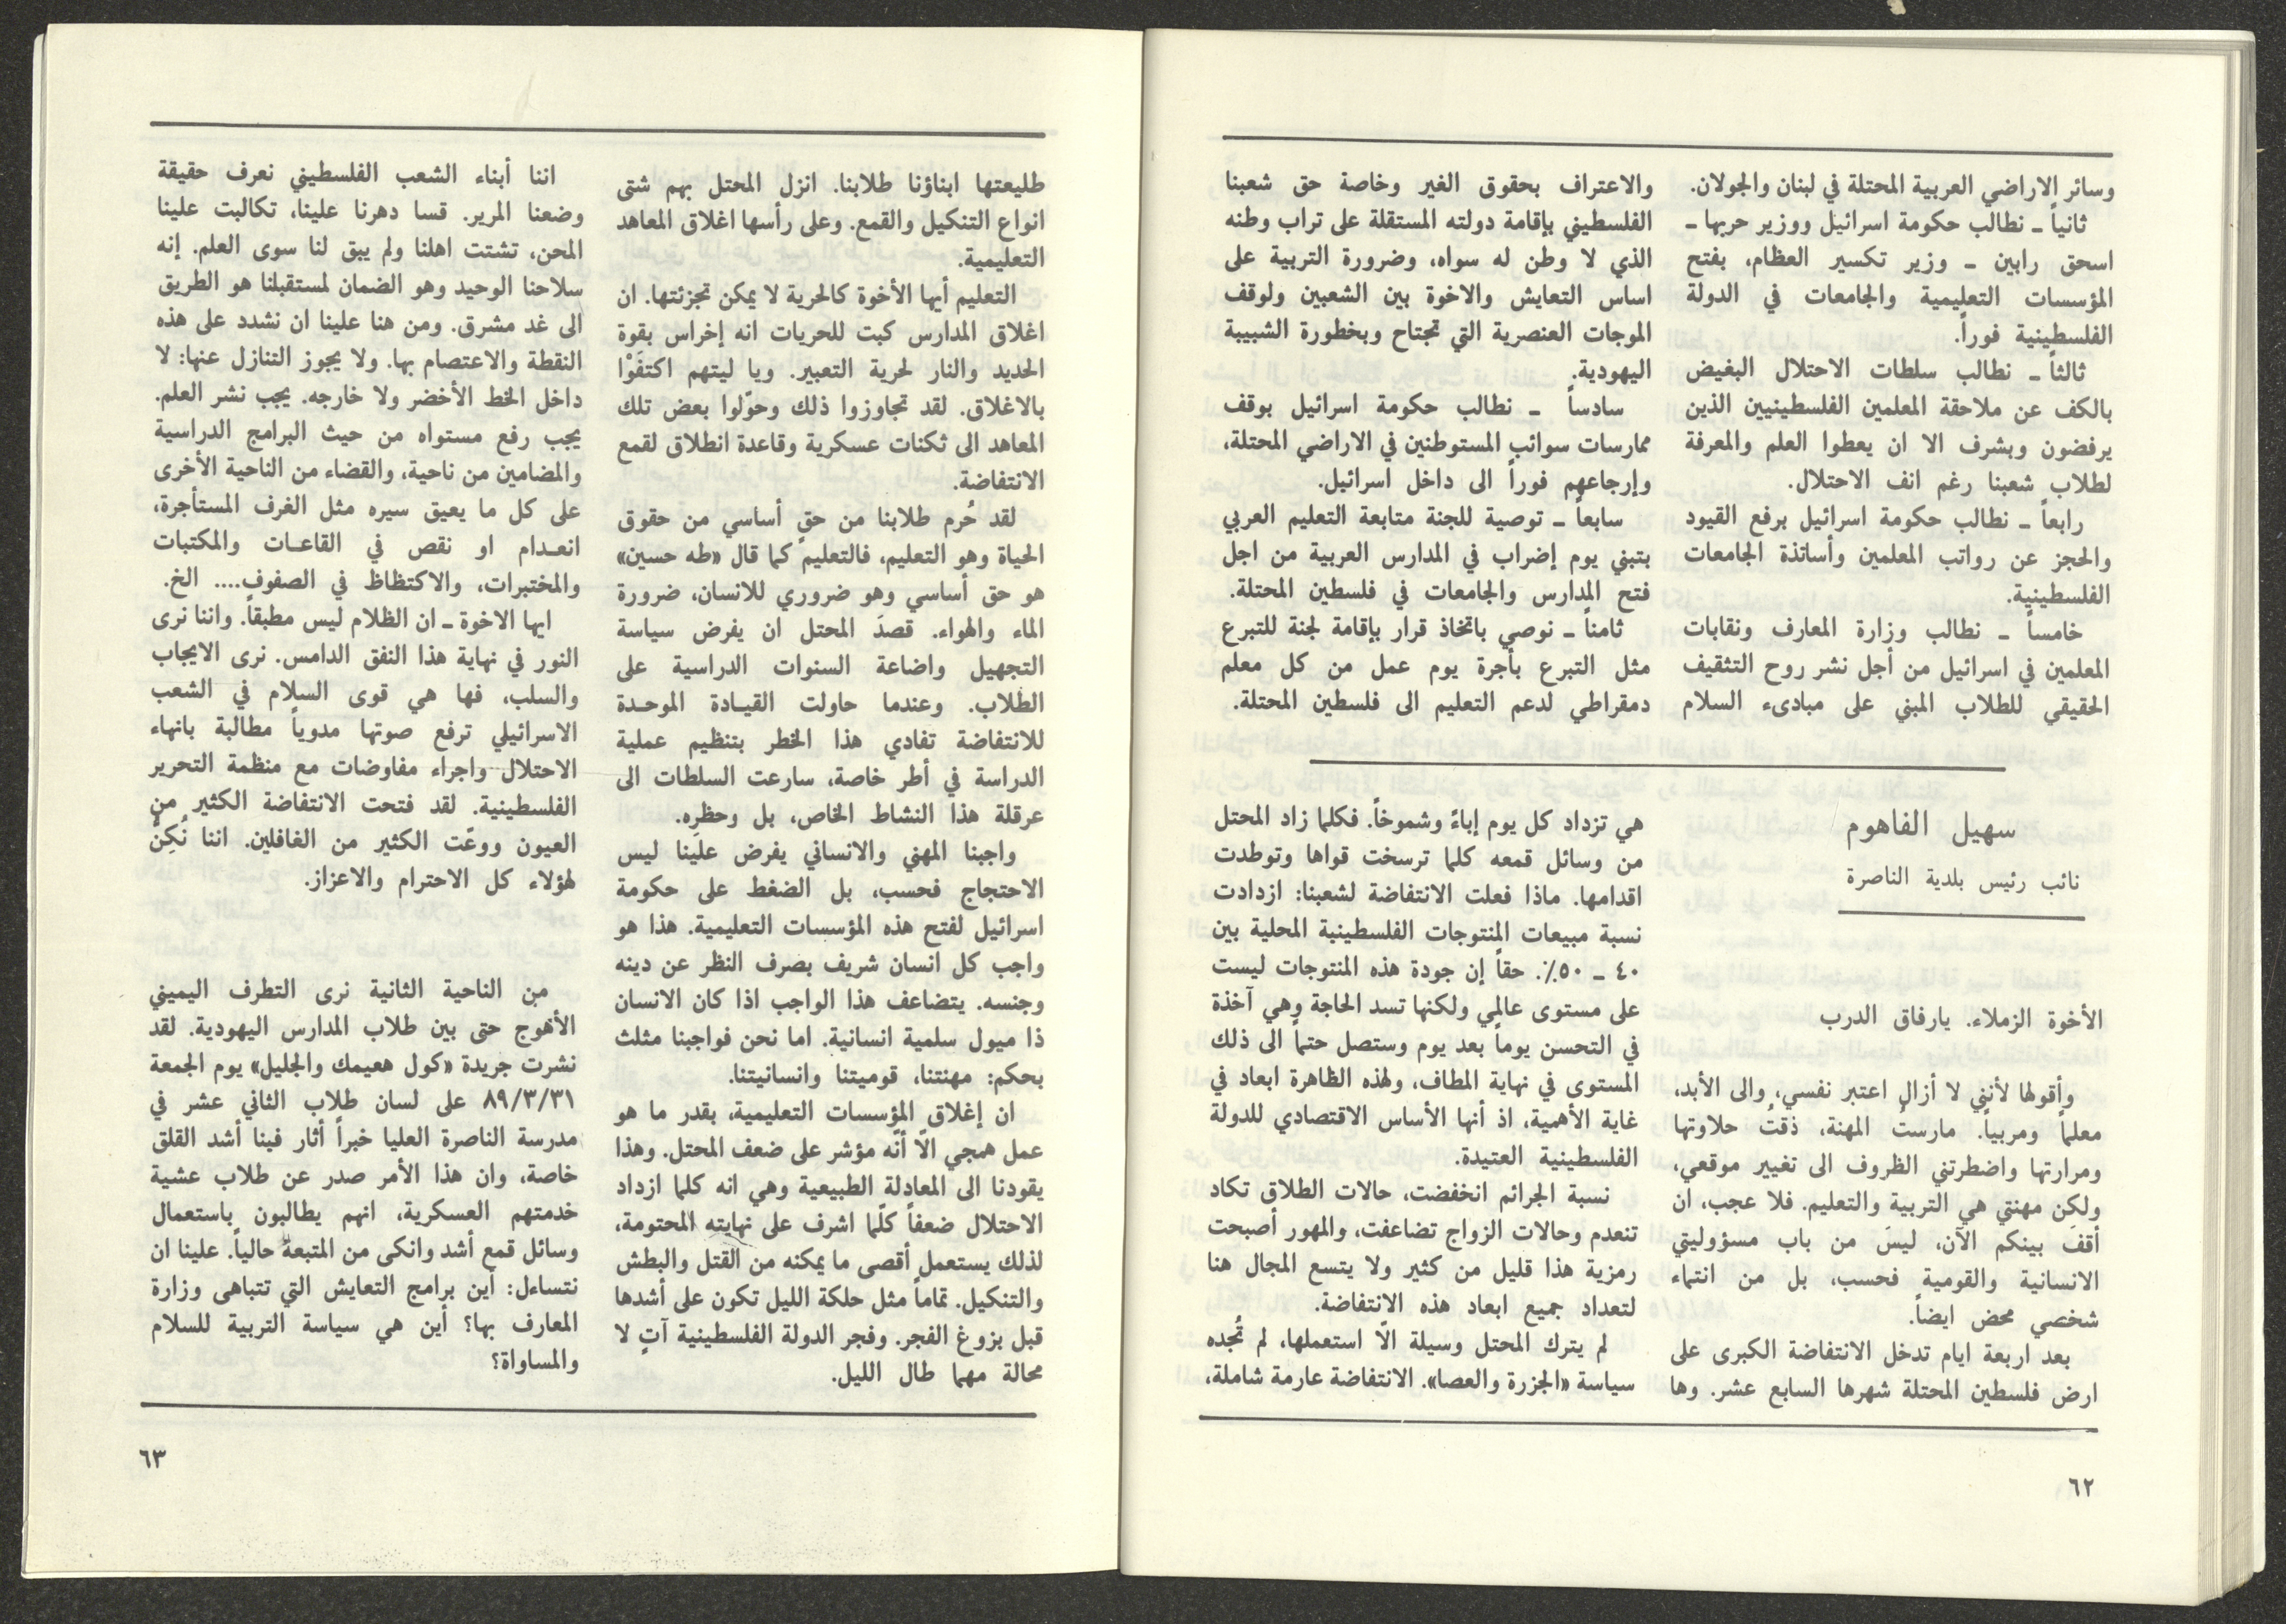 وسائر الاراضي العربية المحتلة في لبنان والجولان.
ثانياً ـ نطالب حكومة اسرائيل ووزير حربها ـ
اسحق رابين ـ وزير تكسير العظام، بفتح
المؤسسات التعليمية والجامعات في الدولة
الفلسطينية فوراً.
ثالثاً ـ نطالب سلطات الاحتلال البغيض
بالكف عن ملاحقة المعلمين الفلسطينيين الذين
يرفضون وبشرف الا ان يعطوا العلم والمعرفة
لطلاب شعبنا رغم انف الاحتلال.
رابعاً ـ نطالب حكومة اسرائيل برفع القيود
والحجز عن رواتب المعلمين وأساتذة الجامعات
الفلسطينية.
خامساً ـ نطالب وزارة المعارف ونقابات
المعلمين في اسرائيل من أجل نشر روح التثقيف
الحقيقي للطلاب المبني على مبادىء السلام
والاعتراف بحقوق الغير وخاصة حق شعبنا
الفلسطيني بإقامة دولته المستقلة على تراب وطنه
الذي لا وطن له سواه، وضرورة التربية على
اساس التعايش والاخوة بين الشعبين ولوقف
الموجات العنصرية التي تجتاح وبخطورة الشبيبة
اليهودية.
سادساً ـ نطالب حكومة اسرائيل بوقف
ممارسات سوائب المستوطنين في الاراضي المحتلة،
وإرجاعهم فوراً الى داخل اسرائيل.
سابعاً ـ توصية للجنة متابعة التعليم العربي
بتبني يوم إضراب في المدارس العربية من اجل
فتح المدارس والجامعات في فلسطين المحتلة.
ثامناً ـ نوصي باتخاذ قرار بإقامة لجنة للتبرع
مثل التبرع بأجرة يوم عمل من كل معلم
دمقراطي لدعم التعليم الى فلسطين المحتلة.
سهيل الفاهوم
نائب رئيس بلدية الناصرة
الأخوة الزملاء. يارفاق الدرب
وأقولها لأنني لا أزال اعتبر نفسي، والى الأبد،
معلماً ومربياً. مارستُ المهنة، ذقتُ حلاوتها
ومرارتها واضطرتني الظروف الى تغيير موقعي،
ولكن مهنتي هي التربية والتعليم. فلا عجب، ان
أقفَ بينكم الآن، ليسَ من باب مسؤوليتي
الانسانية والقومية فحسب، بل من انتماء
شخصي محض ايضاً.
بعد اربعة ايام تدخل الانتفاضة الكبرى على
ارض فلسطين المحتلة شهرها السابع عشر. وها
هي تزداد كل يوم إباءً وشموخاً. فكلما زاد المحتل
من وسائل قمعه كلما ترسخت قواها وتوطدت
اقدامها. ماذا فعلت الانتفاضة لشعبنا: ازدادت
نسبة مبيعات المنتوجات الفلسطينية المحلية بين
٤٠ ـ ٥٠٪. حقاً إن جودة هذه المنتوجات ليست
على مستوى عالمي ولكنها تسد الحاجة وهي آخذة
في التحسن يوماً بعد يوم وستصل حتماً الى ذلك
المستوى في نهاية المطاف، ولهذه الظاهرة ابعاد في
غاية الأهمية، اذ أنها الأساس الاقتصادي للدولة
الفلسطينية العتيدة.
نسبة الجرائم انخفضت، حالات الطلاق تكاد
تنعدم وحالات الزواج تضاعفت، والمهور أصبحت
رمزية هذا قليل من كثير ولا يتسع المجال هنا
لتعداد جميع ابعاد هذه الانتفاضة.
لم يترك المحتل وسيلة الّا استعملها، لم تُجده
سياسة «الجزرة والعصا». الانتفاضة عارمة شاملة،
٦٢
طليعتها ابناؤنا طلابنا. انزل المحتل بهم شتى
انواع التنكيل والقمع. وعلى رأسها اغلاق المعاهد
التعليمية.
التعليم أيها الأخوة كالحرية لا يمكن تجزئتها. ان
اغلاق المدارس كبت للحريات انه إخراس بقوة
الحديد والنار لحرية التعبير. ويا ليتهم اكتفَوْا
بالاغلاق. لقد تجاوزوا ذلك وحوّلوا بعض تلك
المعاهد الى ثكنات عسكرية وقاعدة انطلاق لقمع
الانتفاضة.
لقد حُرم طلابنا من حقٍ أساسي من حقوق
الحياة وهو التعليم، فالتعليم كما قال «طه حسين»
هو حق أساسي وهو ضروري للانسان، ضرورة
الماء والهواء. قصدَ المحتل ان يفرض سياسة
التجهيل واضاعة السنوات الدراسية على
الطلاب. وعندما حاولت القيـادة الموحـدة
للانتفاضة تفادي هذا الخطر بتنظيم عملية
الدراسة في أطر خاصة، سارعت السلطات الى
عرقلة هذا النشاط الخاص، بل وحظرِه.
واجبنا المهني والانساني يفرض علينا ليس
الاحتجاج فحسب، بل الضغط على حكومة
اسرائيل لفتح هذه المؤسسات التعليمية. هذا هو
واجب كل انسان شريف بصرف النظر عن دينه
وجنسه. يتضاعف هذا الواجب اذا كان الانسان
ذا ميول سلمية انسانية. اما نحن فواجبنا مثلث
بحكم: مهنتنا، قوميتنا وانسانيتنا.
ان إغلاق المؤسسات التعليمية، بقدر ما هو
عمل همجي الّا أنّه مؤشر على ضعف المحتل. وهذا
يقودنا الى المعادلة الطبيعية وهي انه كلما ازداد
الاحتلال ضعفاً كلّما اشرف على نهايته المحتومة،
لذلك يستعمل أقصى ما يمكنه من القتل والبطش
والتنكيل. تماماً مثل حلكة الليل تكون على أشدها
قبل بزوغ الفجر. وفجر الدولة الفلسطينية آتٍ لا
محالة مهما طال الليل.
اننا أبناء الشعب الفلسطيني نعرف حقيقة
وضعنا المرير. قسا دهرنا علينا، تكالبت علينا
المحن، تشتت اهلنا ولم يبق لنا سوى العلم. إنه
سلاحنا الوحيد وهو الضمان لمستقبلنا هو الطريق
الى غد مشرق. ومن هنا علينا ان نشدد على هذه
النقطة والاعتصام بها. ولا يجوز التنازل عنها: لا
داخل الخط الأخضر ولا خارجه. يجب نشر العلم.
يجب رفع مستواه من حيث البرامج الدراسية
والمضامين من ناحية، والقضاء من الناحية الأخرى
على كل ما يعيق سيره مثل الغرف المستأجرة،
انعـدام او نقص في القاعـات والمكتبات
والمختبرات، والاكتظاظ في الصفوف.... الخ.
ايها الاخوة ـ ان الظلام ليس مطبقاً. واننا نرى
النور في نهاية هذا النفق الدامس. نرى الايجاب
والسلب، فها هي قوى السلام في الشعب
الاسرائيلي ترفع صوتها مدوياً مطالبة بانهاء
الاحتلال واجراء مفاوضات مع منظمة التحرير
الفلسطينية. لقد فتحت الانتفاضة الكثير من
العيون ووعّت الكثير من الغافلين. اننا نُكِنُّ
لهؤلاء كل الاحترام والاعزاز.
من الناحية الثانية نرى التطرف اليميني
الأهوج حتى بين طلاب المدارس اليهودية. لقد
نشرت جريدة «كول هعيمك والجليل» يوم الجمعة
٨٩/٣/٣١ على لسان طلاب الثاني عشر في
مدرسة الناصرة العليا خبراً أثار فينا أشد القلق
خاصة، وان هذا الأمر صدر عن طلاب عشية
خدمتهم العسكرية، انهم يطالبون باستعمال
وسائل قمع أشد وانكى من المتبعة حالياً. علينا ان
نتساءل: أين برامج التعايش التي تتباهى وزارة
المعارف بها؟ أين هي سياسة التربية للسلام
والمساواة؟
٦٣